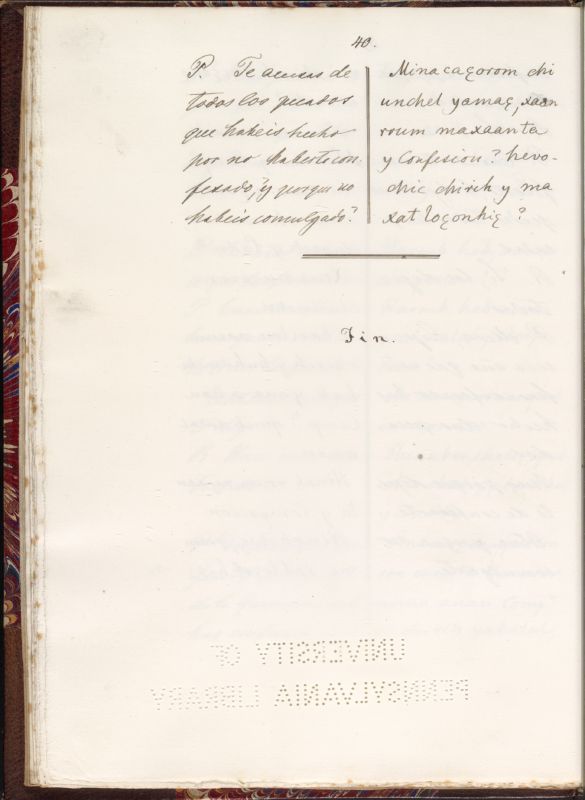 40.
P. Te acusas de
todos los pecados
que habeis hecho
por no haberte con
fesado, y porque no
habeis comulgado?
Minacaꜫorom chi
unchel yamaꜫ, xaan
roum maxaanta
y Confesion? hevo-
chic chirih y ma
xat loꜫonhiꜫ?
Fin.
UNIVERSITY OF
PENNSYLVANIA LIBRARY